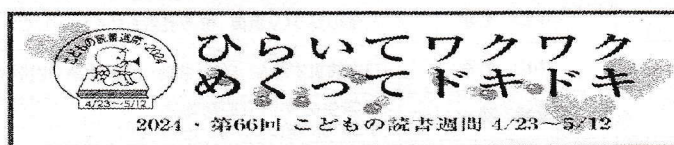 こどもの読書週間・2024
4/23～5/12
ひらいてワクワク
めくってドキドキ
2024・第66回 こどもの読書週間 4/23～5/12